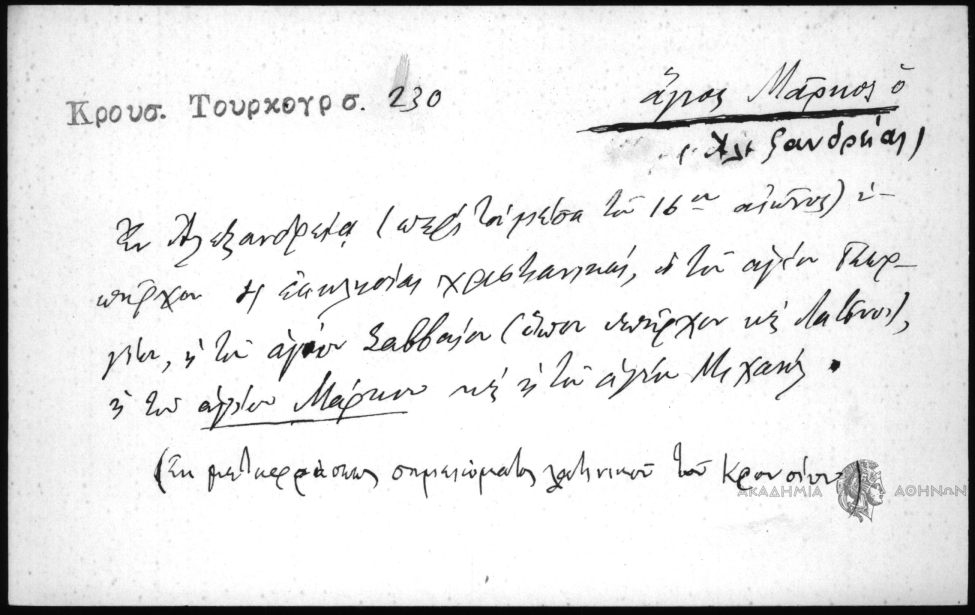 Κρουσ. Τουρκογρ σ. 230
ἅγιος Μᾶρκος ὁ
(Ἀλεξανδρείας)
Ἐν Ἀλεξανδρείᾳ (περὶ τὰ μέσα τοῦ 16ου αἰῶνος) ὑ-
πῆρχον 4 ἐκκλησίαι χριστιανικαί, ἡ τοῦ ἁγίου Γεωρ-
γίου, ἡ τοῦ ἁγίου Σαββαίου (ὅπου ὑπῆρχον καὶ Λατῖνοι),
ἡ τοῦ ἁγίου Μάρκου καὶ ἡ τοῦ ἁγίου Μιχαήλ.
(Ἐκ μεταφράσεως σημειώματος λατινικοῦ τοῦ Κρουσίου)
ΑΚΑΔΗΜΙΑ ΑΘΗΝΩΝ